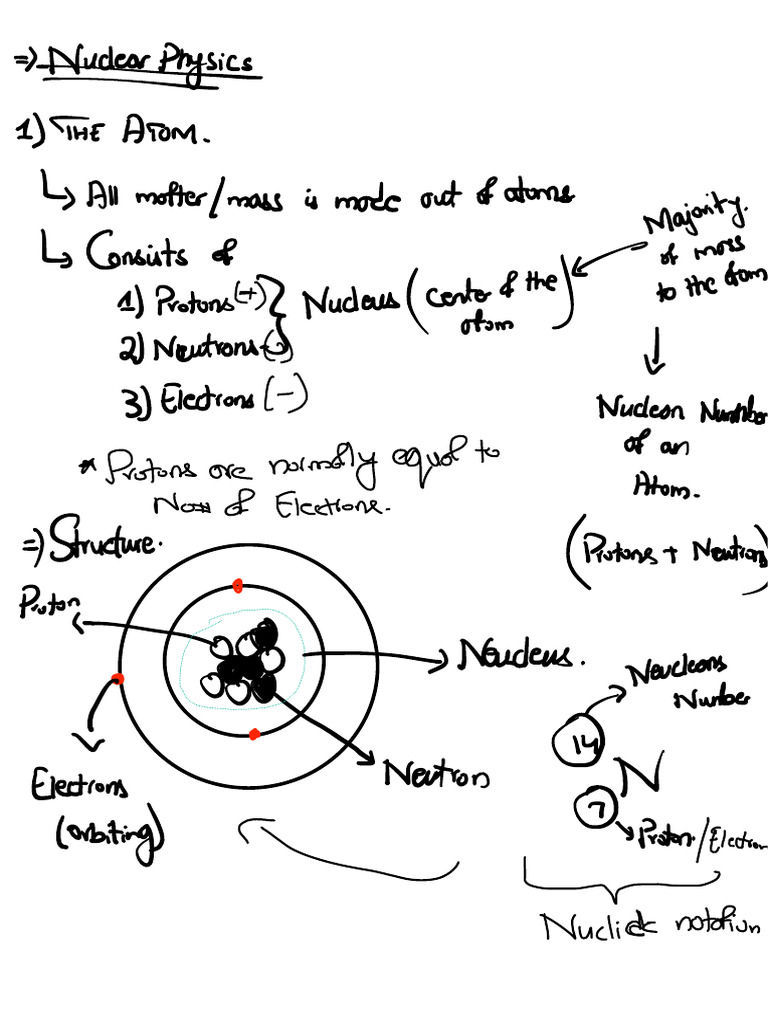 => Nuclear Physics
1) THE ATOM.
↳ All matter/mass is made out of atoms
↳ Consists of
1) Protons (+)
2) Neutrons (o)
} Nucleus (center of the
atom)
3) Electrons (-)
Majority
of mass
to the atom
Nucleon Number
of an
Atom.
(Protons + Neutron)
* Protons are normally equal to
No= of Electrons.
=) Structure.
Proton
Neucleus.
Neutron
Electrons
(orbiting)
Neucleons
Number
14
N
7
Proton/Electron
Nuclide notation